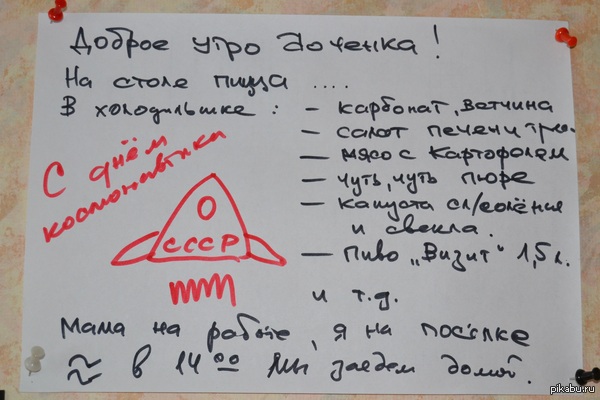 Доброе утро доченка!
На столе пицца ....
В холодильнике :
– карбонат, ветчина
– салат печени трес-
– мясо с картофелем
– чуть, чуть пюре
– капуста сл/соления
и свекла.
– Пиво „Визит" 1,5 л.
и т.д.
С днём
космонавтика
СССР
Мама на работе, я на посылке
≈ в 14 00 мы заедем домой.
pikabu.ru